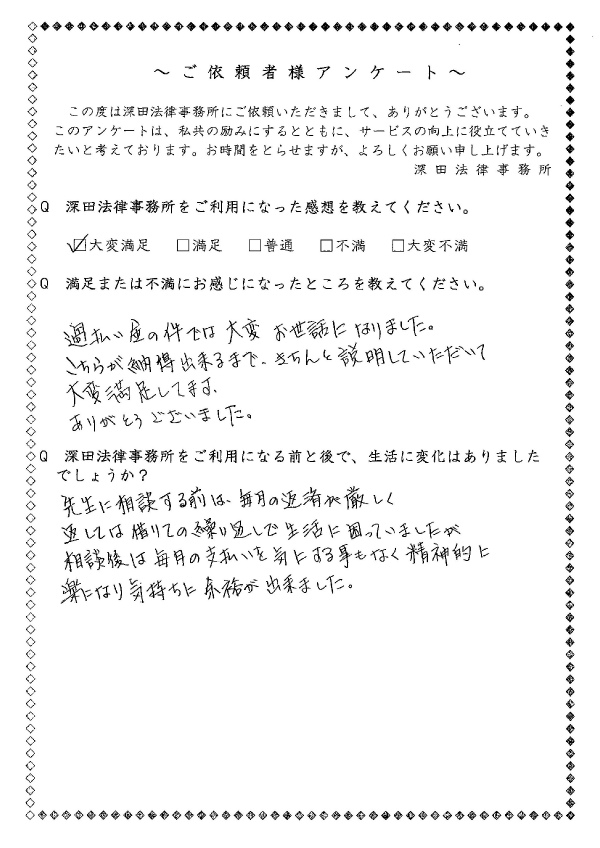 ～ご依頼者様アンケート～
この度は深田法律事務所にご依頼いただきまして、ありがとうございます。
このアンケートは、私共の励みにするとともに、サービスの向上に役立てていき
たいと考えております。お時間をとらせますが、よろしくお願い申し上げます。
深田法律事務所
Q 深田法律事務所をご利用になった感想を教えてください。
☑大変満足 □満足 □普通 □不満 □大変不満
Q 満足または不満にお感じになったところを教えてください。
過払い金の件では大変お世話になりました。
こちらが納得出来るまで、きちんと説明していただいて
大変満足してます。
ありがとうございました。
Q 深田法律事務所をご利用になる前と後で、生活に変化はありました
でしょうか？
先生に相談する前は、毎月の返済が厳しく
返しては借りての繰り返しで生活に困っていましたが
相談後は毎月の支払いを気にする事もなく精神的に
楽になり気持ちに余裕が出来ました。